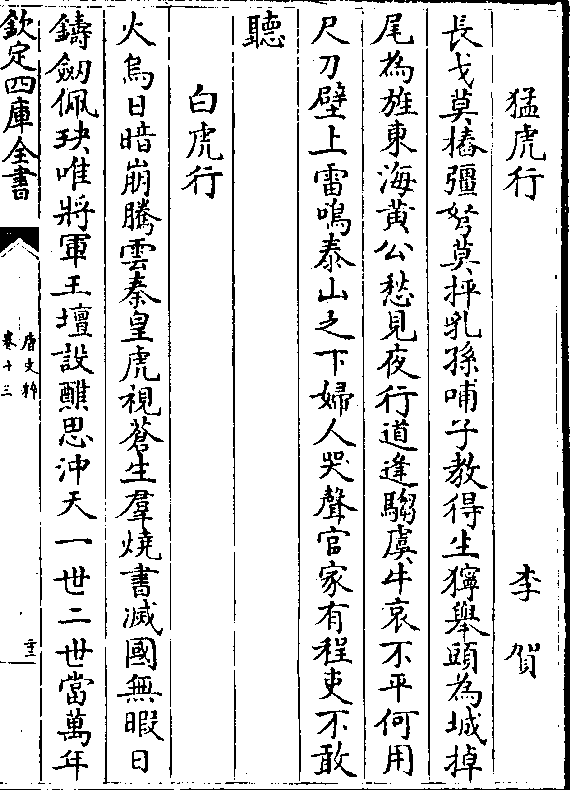 猛虎行 李賀
長戈莫樁彊弩莫抨乳孫哺子教得生獰舉頭為城掉
尾為旌東海黃公愁見夜行道逢騶虞牛哀不平何用
尺刀壁上雷鳴泰山之下婦人哭聲官家有程吏不敢
聽
白虎行
火烏日暗崩騰雲秦皇虎視蒼生羣燒書滅國無暇日
鑄劒佩玦唯將軍王壇設醮思沖天一世二世當萬年
欽定四庫全書
唐文粹
卷十三